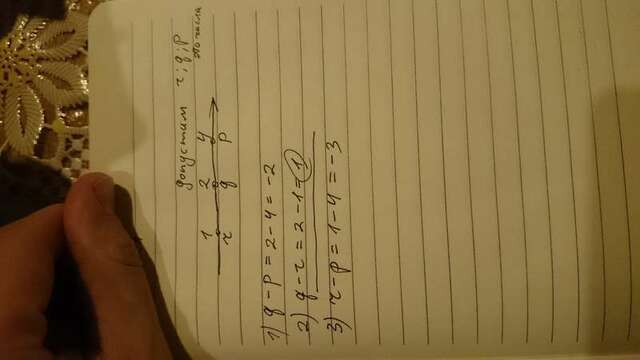 допустим r; q; p
это числа
1 2 4
r q p
1) q - p = 2 - 4 = -2
2) q - r = 2 - 1 = 1
3) r - p = 1 - 4 = -3